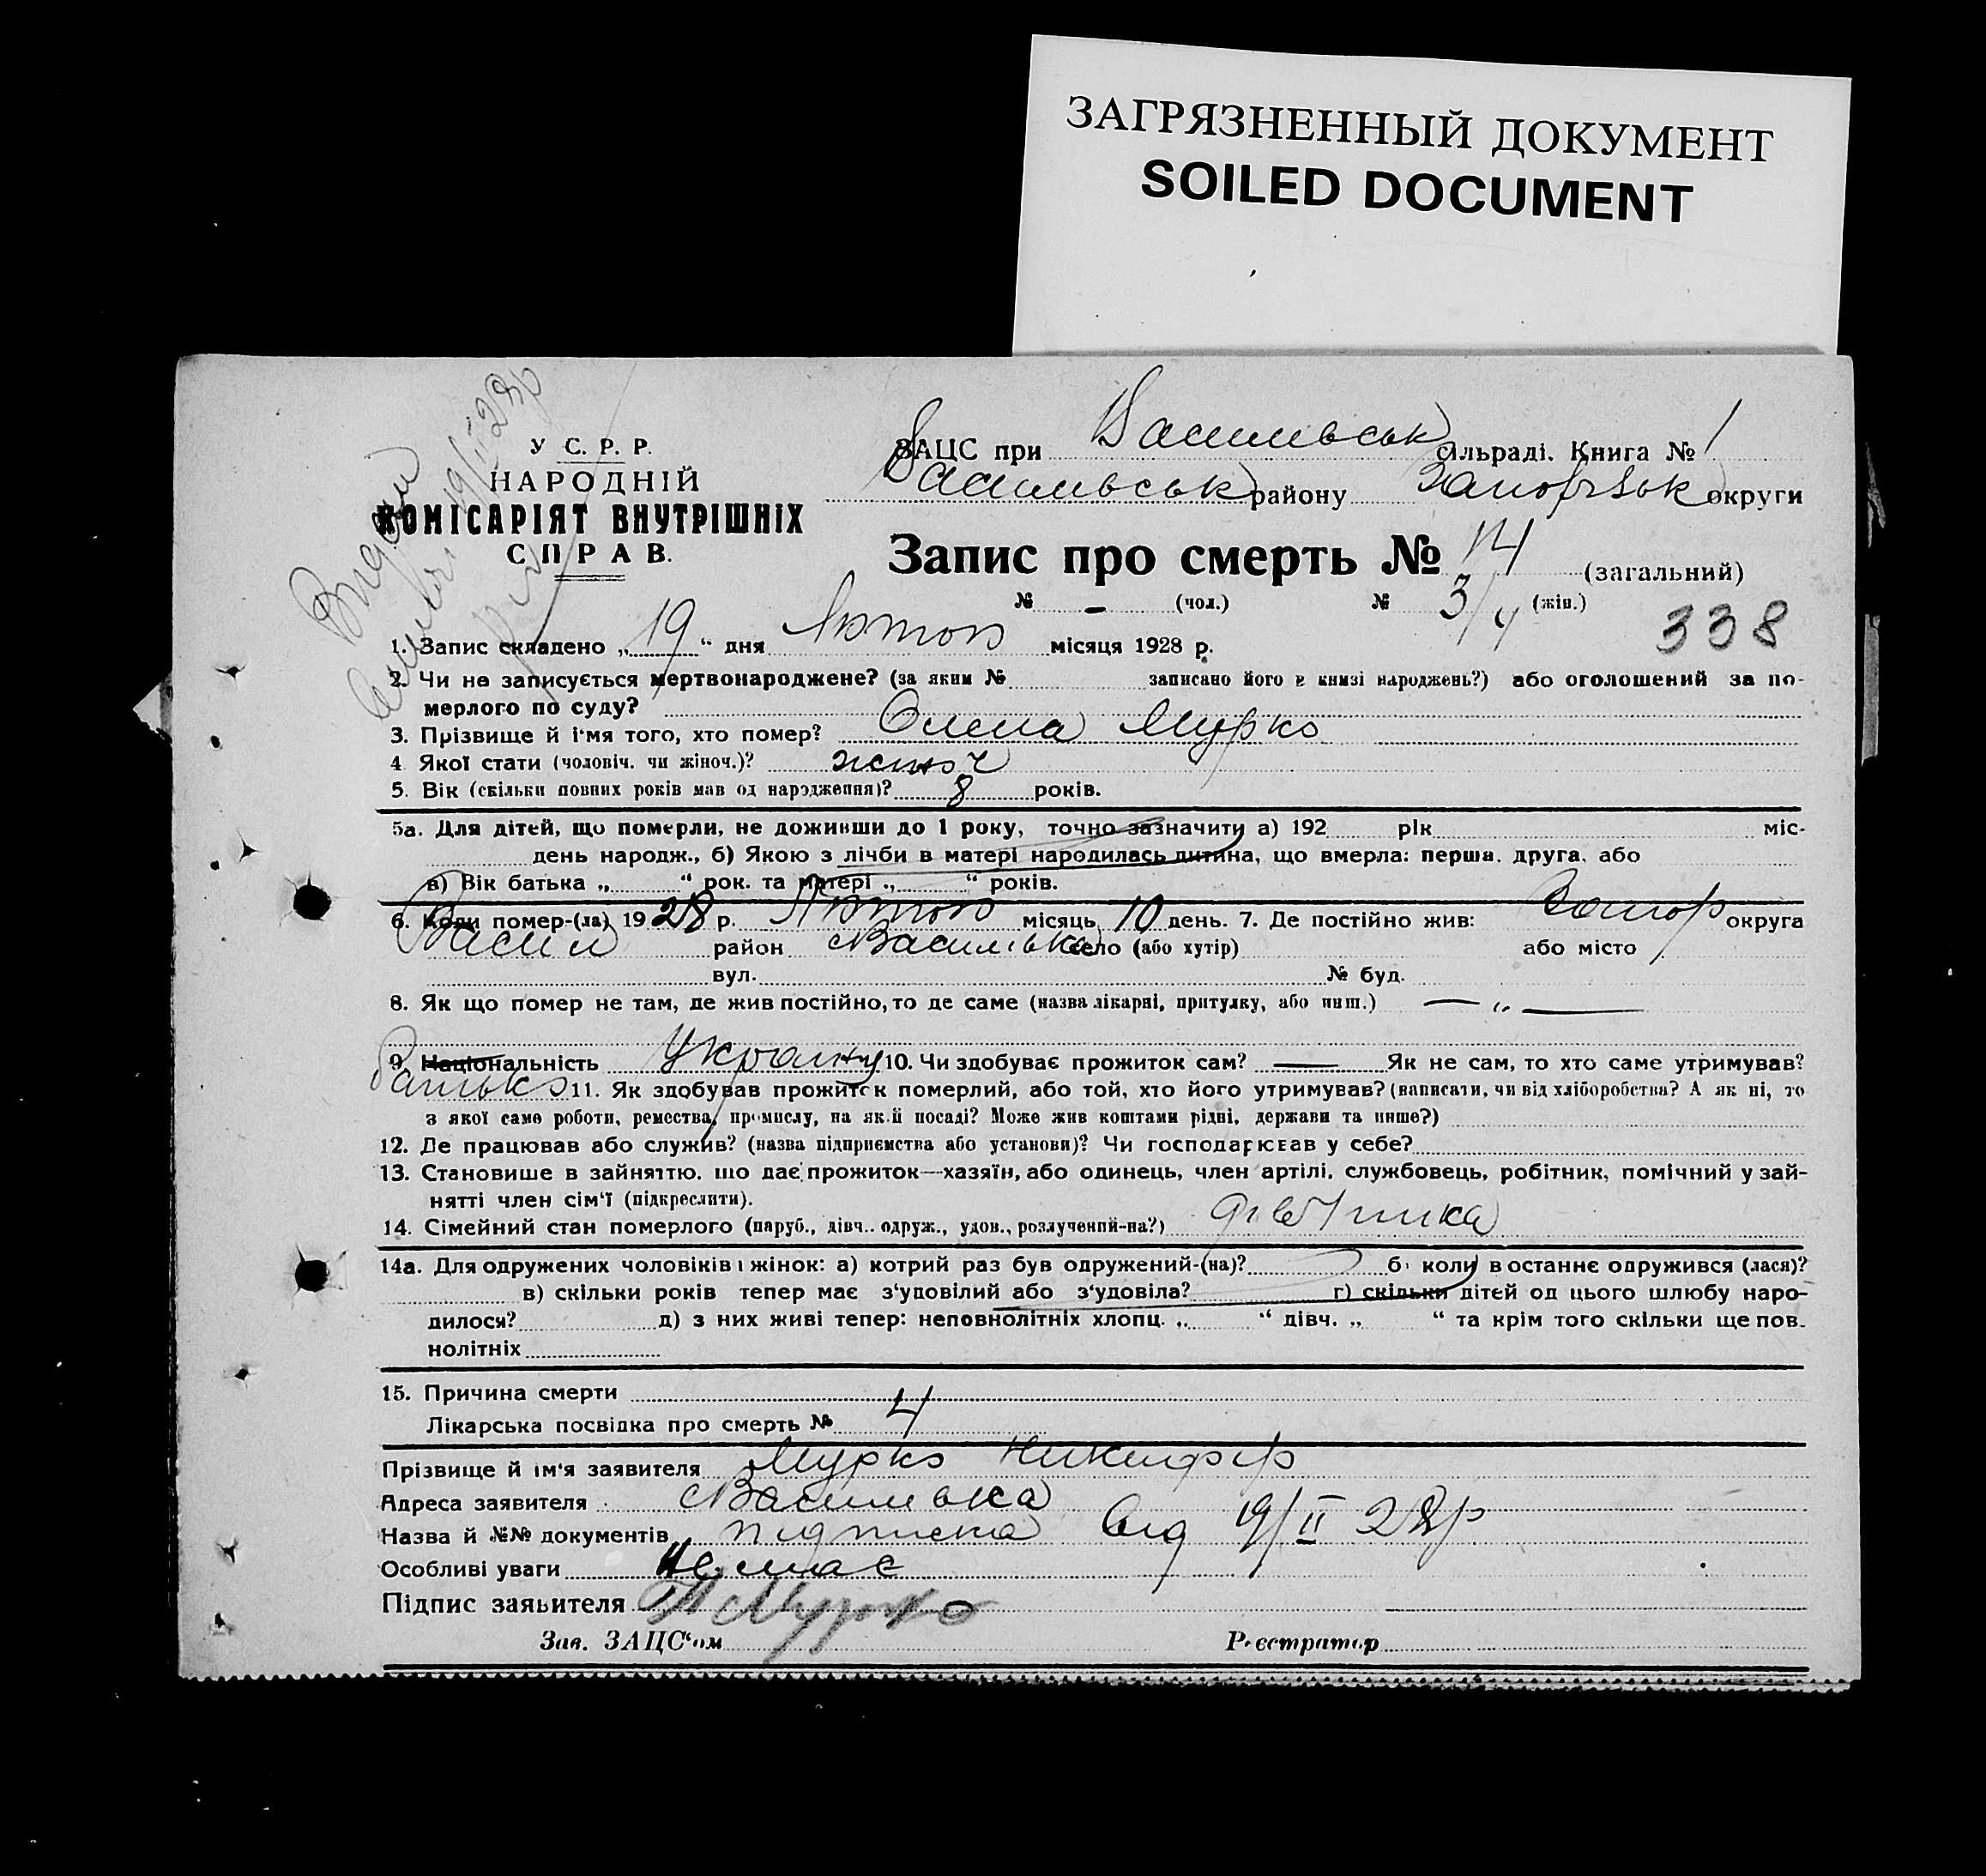 ЗАГРЯЗНЕННЫЙ ДОКУМЕНТ
SOILED DOCUMENT
У С. Р. Р.
НАРОДНІЙ
КОМІСАРІЯТ ВНУТРІШНІХ
СПРАВ.
ЗАЦС при Василивськ сільраді. Книга № 1
Василивськ району Запорізьк округи
Запис про смерть № 14 (загальний)
№ - (чол.) № 3/4 (жін.)
338
1. Запис складено „19“ дня Лютого місяця 1928 р.
2. Чи не записується мертвонароджене? (за яким № записано його в книзі народжень?) або оголошений за по-
мерлого по суду?
3. Прізвище й ім'я того, хто помер? Олена Мурко
4. Якої стати (чоловіч. чи жіноч.)? жіноч
5. Вік (скільки повних років мав од народження)? 8 років.
5а. Для дітей, що померли, не доживши до 1 року, точно зазначити а) 192 рік міс.
день народж., б) Якою з лічби в матері народилась дитина, що вмерла: перша, друга, або
в) Вік батька „ “ рок. та матері „ “ років.
6. Коли помер-(ла) 1928 р. Лютого місяць 10 день. 7. Де постійно жив: Запор округа
Васил район Василівка село (або хутір) або місто
вул. № буд.
8. Як що помер не там, де жив постійно, то де саме (назва лікарні, притулку, або инш.) — „ —
9. Національність Україн 10. Чи здобуває прожиток сам? — Як не сам, то хто саме утримував?
Батько 11. Як здобував прожиток померлий, або той, хто його утримував? (написати, чи від хліборобства? А як ні, то
з якої саме роботи, ремества, промислу, на якій посаді? Може жив коштами рідні, держави та инше?)
12. Де працював або служив? (назва підприємства або установи)? Чи господарював у себе?
13. Становище в зайняттю, що дає прожиток—хазяїн, або одинець, член артілі, службовець, робітник, помічний у зай-
нятті член сім'ї (підкреслити).
14. Сімейний стан померлого (паруб., дівч., одруж., удов., розлучений-на?) дівчинка
14а. Для одружених чоловіків і жінок: а) котрий раз був одружений-(на)? б) коли в останнє одружився (лася)?
в) скільки років тепер має з'удовілий або з'удовіла? г) скільки дітей од цього шлюбу наро-
дилося? д) з них живі тепер: неповнолітніх хлопц. „ “ дівч. „ “ та крім того скільки ще пов-
нолітніх
15. Причина смерти
Лікарська посвідка про смерть № 4
Прізвище й ім'я заявителя Мурко Никифір
Адреса заявителя Василивка
Назва й №№ документів підписка від 19/II 28р
Особливі уваги Немає
Підпис заявителя Мурко
Зав. ЗАЦС'ом Реєстратор